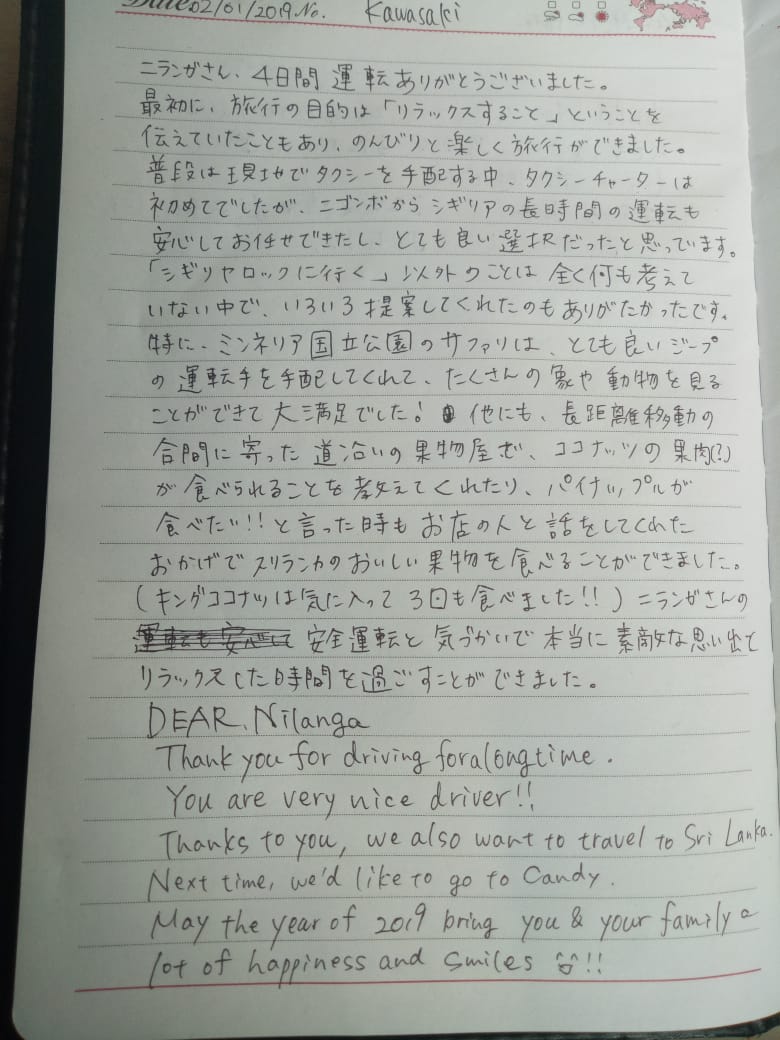 Date 02/01/2019 No. Kawasaki
ニランガさん、4日間 運転ありがとうございました。
最初に、旅行の目的は「リラックスすること」ということを
伝えていたこともあり、のんびりと楽しく旅行ができました。
普段は現地でタクシーを手配する中、タクシーチャーターは
初めてでしたが、ニゴンボからシギリアの長時間の運転も
安心してお任せできたし、とても良い選択だったと思っています。
「シギリヤロックに行く」以外のことは全く何も考えて
いない中で、いろいろ提案してくれたのもありがたかったです。
特に、ミンネリア国立公園のサファリは、とても良いジープ
の運転手を手配してくれて、たくさんの象や動物を見る
ことができて大満足でした! 他にも、長距離移動の
合間に寄った道沿いの果物屋で、ココナッツの果肉(?)
が食べられることを教えてくれたり、パイナップルが
食べたい!!と言った時もお店の人と話をしてくれた
おかげでスリランカのおいしい果物を食べることができました。
(キングココナツは気に入って3回も食べました!!)ニランガさんの
運転も安心して 安全運転と気づかいで本当に素敵な思い出と
リラックスした時間を過ごすことができました。
DEAR, Nilanga
Thank you for driving for a long time.
You are very nice driver!!
Thanks to you, we also want to travel to Sri Lanka.
Next time, we'd like to go to Candy.
May the year of 2019 bring you & your family a
lot of happiness and smiles !!